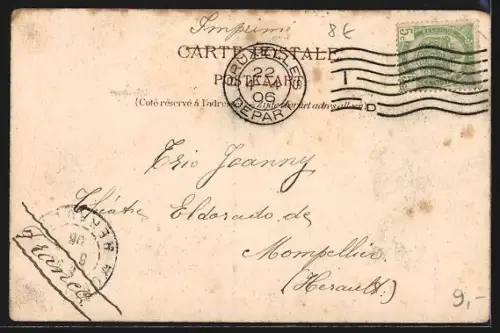 Imprimé
8€
CARTE POSTALE
POSTKAART
(Côté réservé à l'adresse
BRUXELLES
22
06
DEPART
5c
Trio Joanny
Théâtre Eldorado de
Mompellier
(Herault)
France
9,-